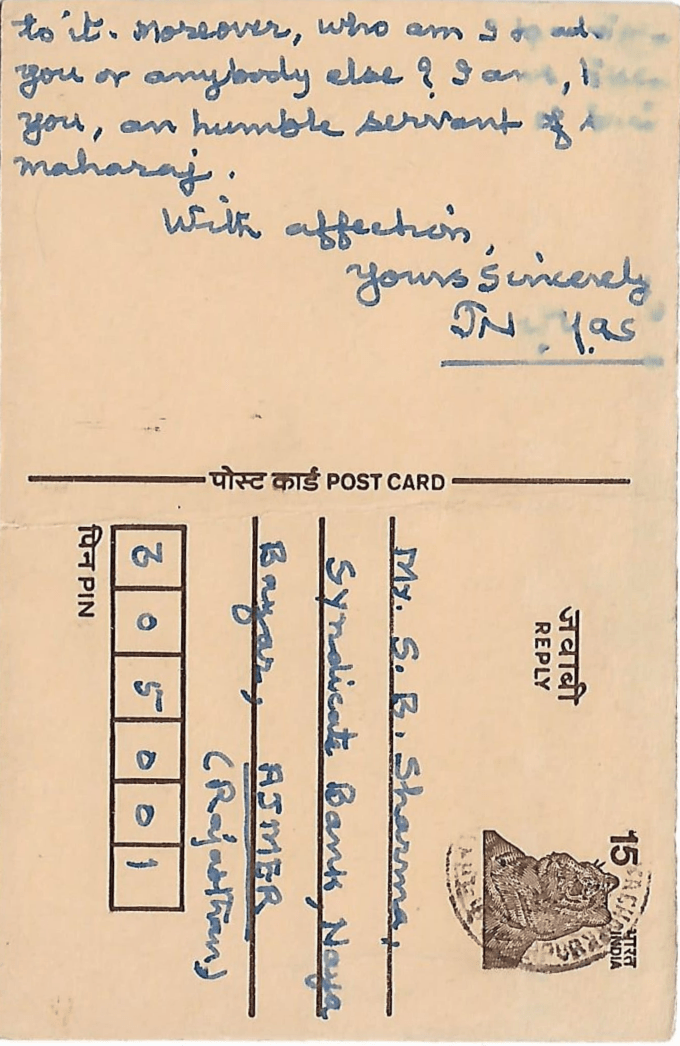 to it. Moreover, who am I to
you or anybody else? I am,
you, an humble servant of
maharaj.
With affection,
Yours Sincerely
पोस्ट कार्ड POST CARD
जवाबी
REPLY
15
भारत
INDIA
Mr. S. B. Sharma,
Syndicate Bank, Naya
Bazar, AJMER
(Rajasthan)
पिन PIN
305001